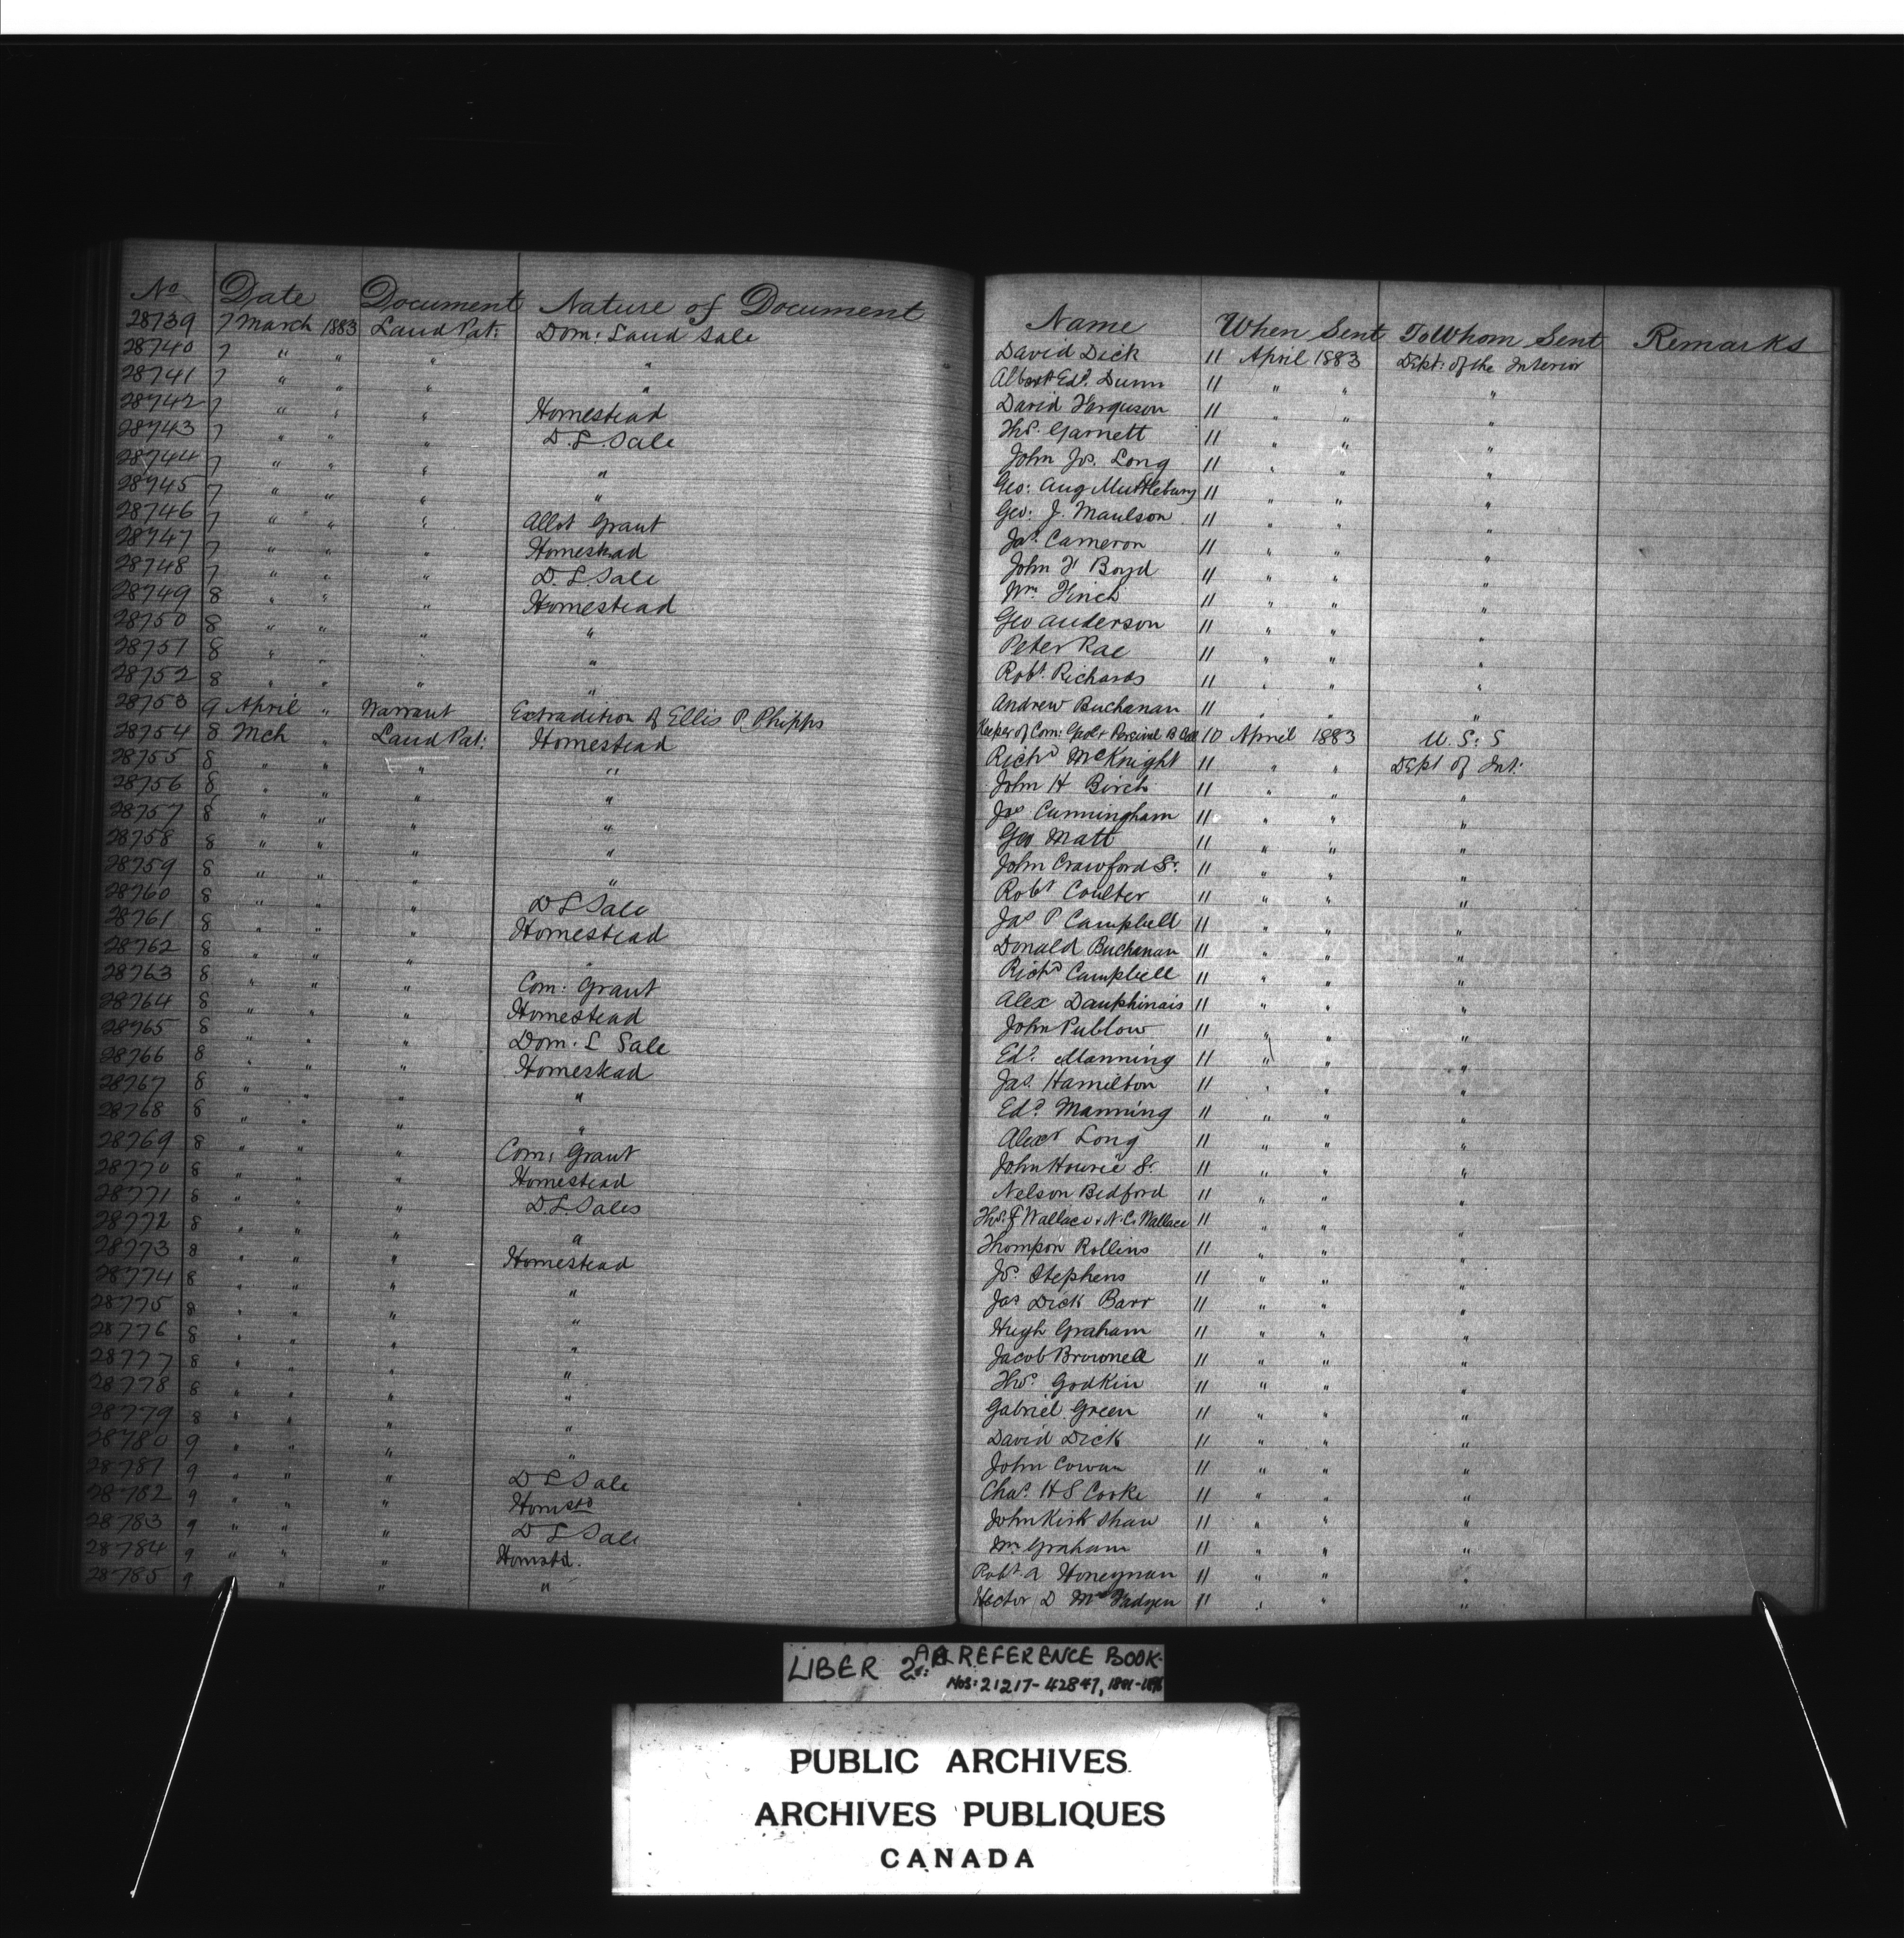 No Date Document Nature of Document
28739 7 March 1883 Land Pat: Dom: Land Sale
28740 7 " " " "
28741 7 " " " "
28742 7 " " " Homestead
28743 7 " " " D.L. Sale
28744 7 " " " "
28745 7 " " " "
28746 7 " " " Allot Grant
28747 7 " " " Homestead
28748 7 " " " D.L. Sale
28749 8 " " " Homestead
28750 8 " " " "
28751 8 " " " "
28752 8 " " " "
28753 9 April " Warrant Extradition of Ellis P. Phipps
28754 8 Mch " Land Pat: Homestead
28755 8 " " " "
28756 8 " " " "
28757 8 " " " "
28758 8 " " " "
28759 8 " " " "
28760 8 " " " D L Sale
28761 8 " " " Homestead
28762 8 " " " "
28763 8 " " " Com: Grant
28764 8 " " " Homestead
28765 8 " " " Dom: L Sale
28766 8 " " " Homestead
28767 8 " " " "
28768 8 " " " "
28769 8 " " " Com: Grant
28770 8 " " " Homestead
28771 8 " " " D.L. Sales
28772 8 " " " "
28773 8 " " " Homestead
28774 8 " " " "
28775 8 " " " "
28776 8 " " " "
28777 8 " " " "
28778 8 " " " "
28779 8 " " " "
28780 9 " " " "
28781 9 " " " D L Sale
28782 9 " " " Homstd
28783 9 " " " D L Sale
28784 9 " " " Homstd.
28785 9 " " " "
Name When Sent To Whom Sent Remarks
David Dick 11 April 1883 Dept: of the Interior
Albert Edd. Dunn 11 " " "
David Ferguson 11 " " "
Thos. Garnett 11 " " "
John Jos. Long 11 " " "
Geo: Aug Muttlebury 11 " " "
Geo: J. Maulson 11 " " "
Jas. Cameron 11 " " "
John F Boyd 11 " " "
Wm. Finch 11 " " "
Geo Anderson 11 " " "
Peter Rae 11 " " "
Robt. Richards 11 " " "
Andrew Buchanan 11 " " "
Keeper of Com: Gaol & Percival B 10 April 1883 U. S: S
Richd McKnight 11 " " Dept of Int:
John H Birch 11 " " "
Jos Cunningham 11 " " "
Geo Matt 11 " " "
John Crawford Sr. 11 " " "
Robt Coulter 11 " " "
Jas P Campbell 11 " " "
Donald Buchanan 11 " " "
Richd Campbell 11 " " "
Alex Dauphinais 11 " " "
John Publow 11 " " "
Edd. Manning 11 " " "
Jas. Hamilton 11 " " "
Edd. Manning 11 " " "
Alexr Long 11 " " "
John Hourie Sr. 11 " " "
Nelson Bedford 11 " " "
Thos. F Wallace & N.C. Wallace 11 " " "
Thompson Rollins 11 " " "
Jos. Stephens 11 " " "
Jas Dick Barr 11 " " "
Hugh Graham 11 " " "
Jacob Brownell 11 " " "
Thos. Godkin 11 " " "
Gabriel Green 11 " " "
David Dick 11 " " "
John Cowan 11 " " "
Chas. H S Cooke 11 " " "
John Kirk Shaw 11 " " "
Wm Graham 11 " " "
Robt. A Honeyman 11 " " "
Hector D McFadyen 11 " " "
LIBER 2A REFERENCE BOOK.
NOS: 21217-42847,
PUBLIC ARCHIVES
ARCHIVES PUBLIQUES
CANADA